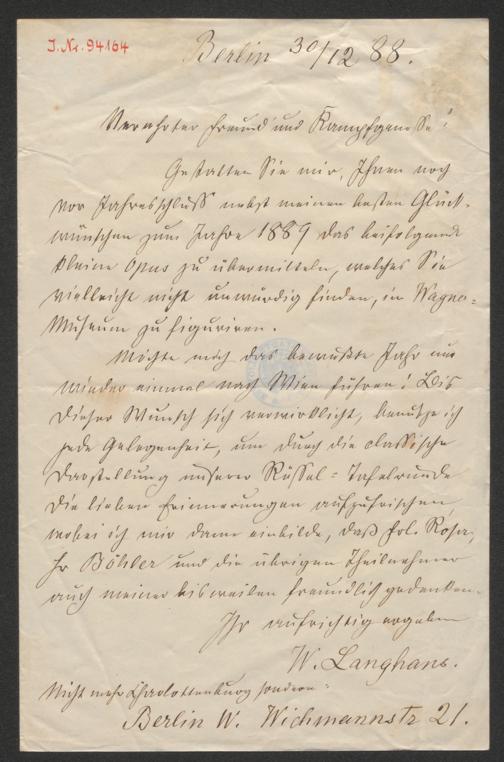 J. Nr. 94164
Berlin 30/12 88.
Verehrter Freund und Kampfgenosse!
Gestatten Sie mir, Ihnen noch
vor Jahresschluß nebst meinen besten Glück-
wünschen zum Jahre 1889 das beifolgende
kleine Opus zu übermitteln, welches Sie
vielleicht nicht unwürdig finden, im Wagner-
Museum zu figuriren.
Möchte mich das bewußte Jahr nur
wieder einmal nach Wien führen! Bis
dieser Wunsch sich verwirklicht, benutze ich
jede Gelegenheit, um durch die classische
Darstellung unserer Rüssel-Tafelrunde
die lieben Erinnerungen aufzufrischen,
wobei ich mir dann einbilde, daß Frl. Rosa,
Hr Böhler und die übrigen Theilnehmer
auch meiner bisweilen freundlich gedenken.
Ihr aufrichtig ergebener
W. Langhans.
Nicht mehr Charlottenburg sondern:
Berlin W. Wichmannstr 21.